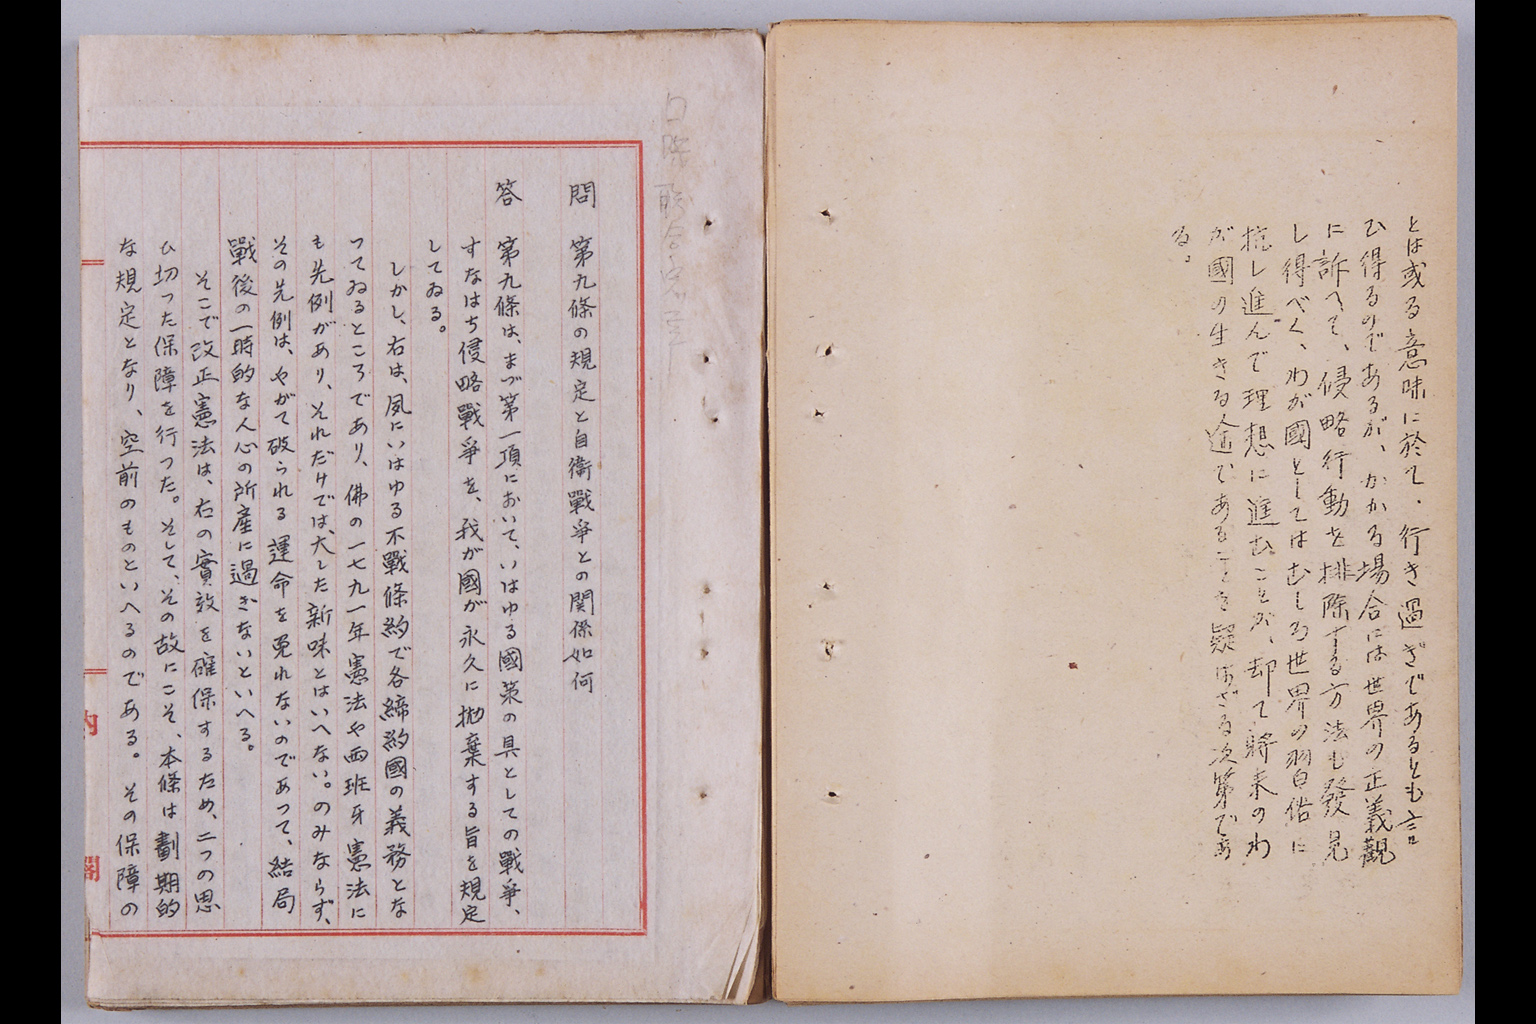 とは或る意味に於て、行き過ぎであるとも言
ひ得るのであるが、かかる場合には世界の正義觀
に訴へて、侵略行動を排除する方法も發見
し得べく、わが國としてはむしろ世界の習俗に
抗し進んで理想に進むことが、却て將来のわ
が國の生きる途であることを疑はざる次第であ
る。
問 第九條の規定と自衛戰爭との関係如何
答 第九條は、まづ第一項において、いはゆる國策の具としての戰爭、
すなはち侵略戰爭を、我が國が永久に抛棄する旨を規定
してゐる。
しかし、右は、夙にいはゆる不戰條約で各締約國の義務とな
つてゐるところであり、佛の一七九一年憲法や西班牙憲法に
も先例があり、それだけでは、大した新味とはいへない。のみならず、
その先例は、やがて破られる運命を免れないのであつて、結局
戰後の一時的な人心の所産に過ぎないといへる。
そこで改正憲法は、右の實效を確保するため、二つの思
ひ切つた保障を行つた。そして、その故にこそ、本條は劃期的
な規定となり、空前のものといへるのである。その保障の
内閣